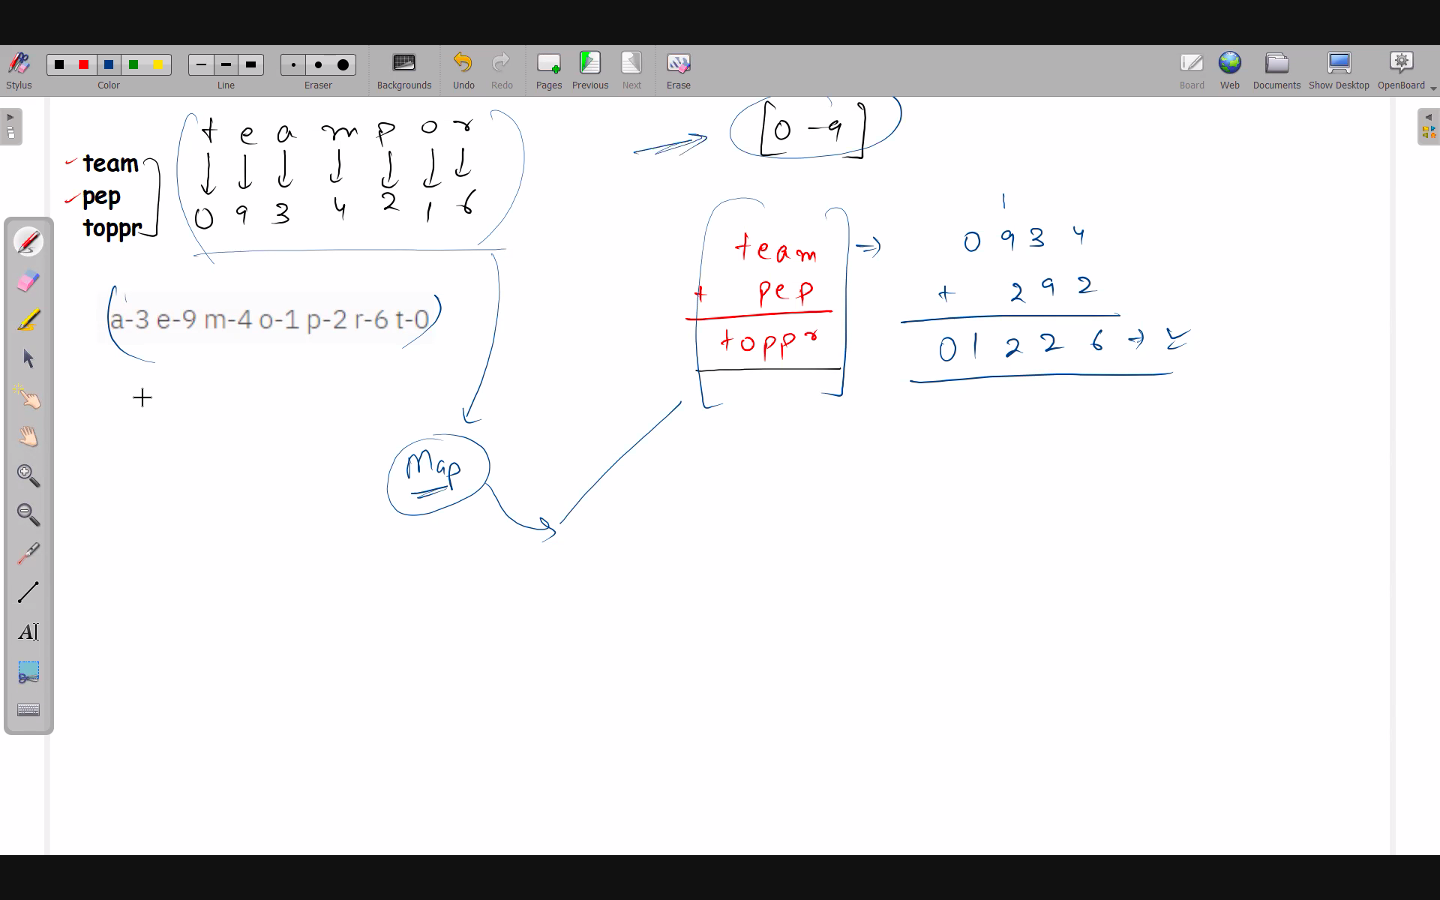 Stylus Color Line Eraser Backgrounds Undo Redo Pages Previous Next Erase Board Web Documents Show Desktop OpenBoard
t e a m p o r
0 9 3 4 2 1 6
team
pep
toppr
[0 - 9]
a-3 e-9 m-4 o-1 p-2 r-6 t-0
team
+ pep
toppr
1
0 9 3 4
+ 2 9 2
0 1 2 2 6
Map
AI